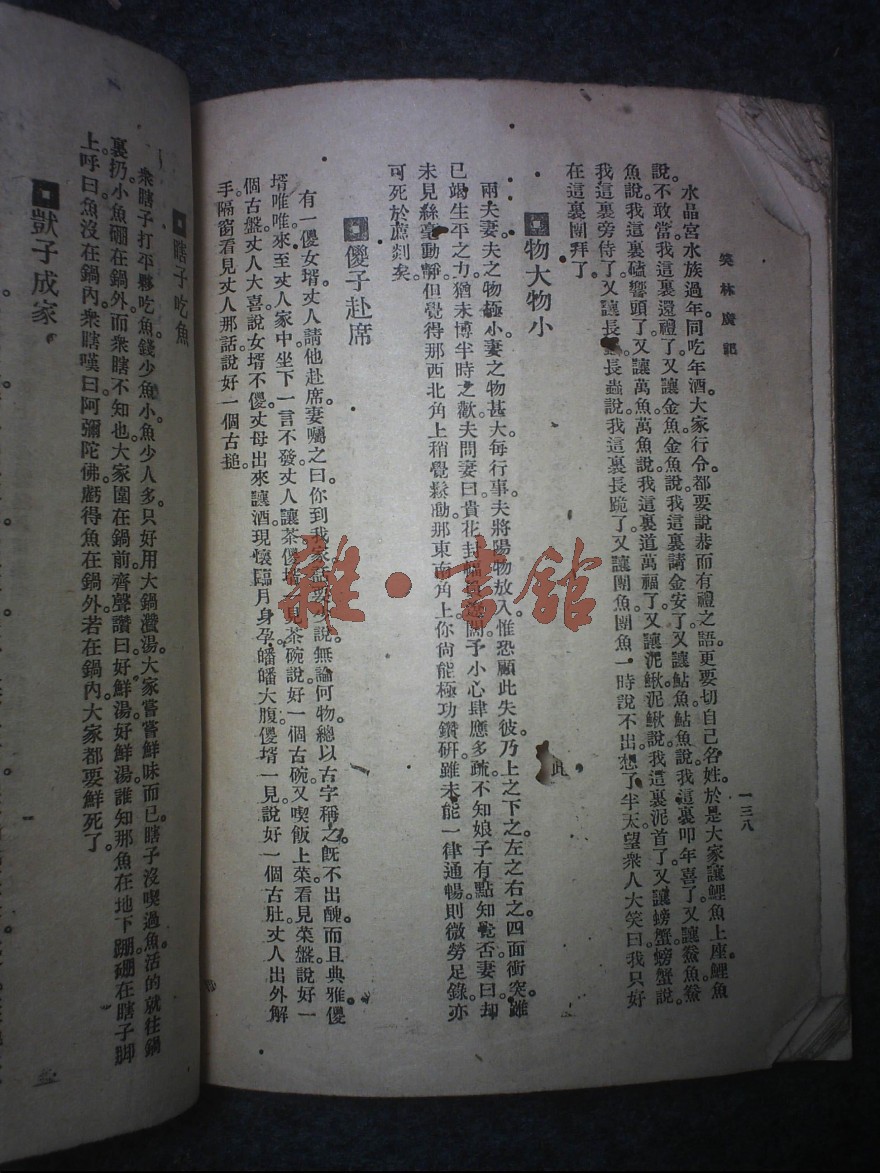 笑林廣記
一三八
水晶宮水族過年。同吃年酒。大家行令。都要說恭而有禮之語。更要切自己名姓。於是大家讓鯉魚上座。鯉魚
說。不敢當。我這裏還禮了。又讓金魚。金魚說。我這裏請金安了。又讓鮎魚。鮎魚說。我這裏叩年喜了。又讓鯗魚。鯗
魚說。我這裏磕響頭了。又讓萬魚。萬魚說。我這裏道萬福了。又讓泥鰍。泥鰍說。我這裏泥首了。又讓螃蟹。螃蟹說。
我這裏旁侍了。又讓長蟲。長蟲說。我這裏長跪了。又讓團魚。團魚一時說不出。想了半天。望衆人大笑曰。我只好
在這裏團拜了。
物大物小
兩夫妻。夫之物極小。妻之物甚大。每行事。夫將陽物放入。惟恐顧此失彼。乃上之下之左之右之。四面衝突。雖
已竭生平之力。猶未博半時之歡。夫問妻曰。貴花封幅員遼闊。予小心肆應多疏。不知娘子有點知覺否。妻曰。却
未見絲毫動靜。但覺得那西北角上稍覺鬆動。那東南角上你尙能極功鑽研。雖未能一律通暢。則微勞足錄。亦
可死於蔗剡矣。
傻子赴席
有一傻女壻。丈人請他赴席。妻囑之曰。你到我家說無論何物。總以古字稱之。旣不出醜。而且典雅。傻
壻唯唯。來至丈人家中坐下。一言不發。丈人讓茶。傻壻一見茶碗。說好一個古碗。又喫飯上菜。看見菜盤。說好一
個古盤。丈人大喜。說女壻不傻。丈母出來讓酒。現懷臨月身孕。皤皤大腹。傻壻一見。說好一個古肚。丈人出外解
手。隔窗看見丈人那話。說好一個古搥。
瞎子吃魚
衆瞎子打平夥吃魚。錢少魚小。魚少人多。只好用大鍋灒湯。大家嘗嘗鮮味而已。瞎子沒喫過魚。活的就往鍋
裏扔。小魚硼在鍋外。而衆瞎不知也。大家圍在鍋前。齊聲讚曰。好鮮湯。好鮮湯。誰知那魚在地下。硼在瞎子脚
上。呼曰。魚沒在鍋內。衆瞎嘆曰。阿彌陀佛。虧得魚在鍋外。若在鍋內。大家都要鮮死了。
獃子成家
雜·書館